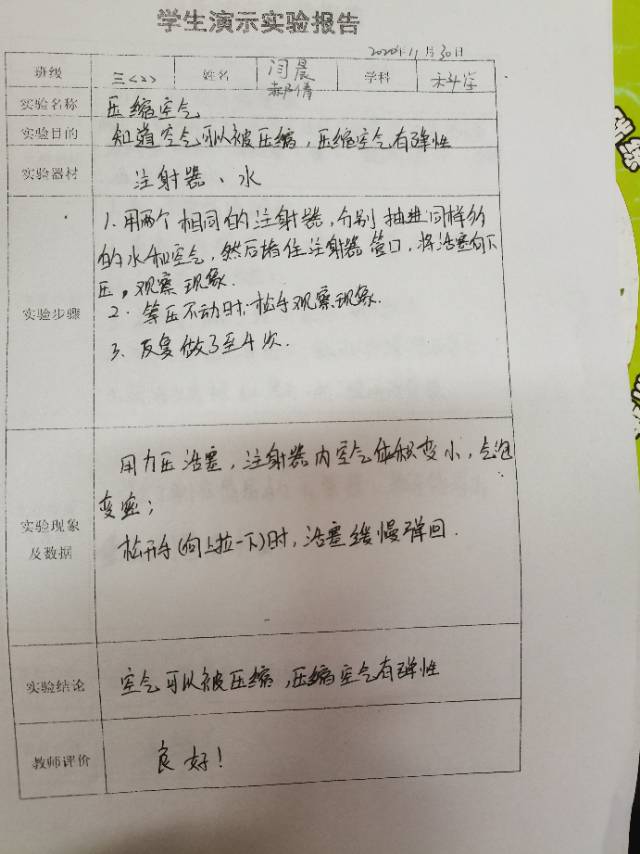 学生演示实验报告
2020年11月30日
班级 三<2> 姓名 闫晨 学科 科学
倩
实验名称 压缩空气
实验目的 知道空气可以被压缩，压缩空气有弹性
实验器材 注射器、水
实验步骤
1.用两个相同的注射器，分别抽进同样多
的水和空气，然后堵住注射器管口，将活塞向下
压，观察现象.
2. 等压不动时松手观察现象.
3. 反复做3至4次.
实验现象
及数据
用力压活塞，注射器内空气体积变小，
变；
松开手(向上拉一下)时，活塞缓慢弹回.
实验结论 空气可以被压缩，压缩空气有弹性
教师评价 良好！